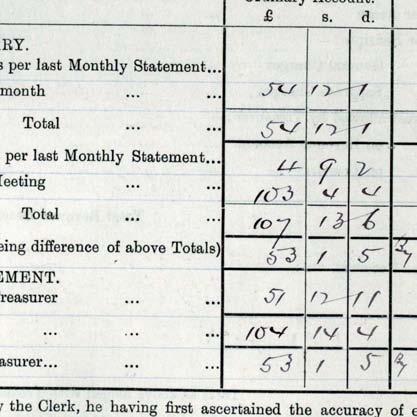 Ordinary Account.
£ s. d.
RY.
s per last Monthly Statement...
month ... ... 54 12 1
Total ... ... 54 12 1
per last Monthly Statement... 4 9 2
eeting ... ... 103 4 4
Total ... ... 107 13 6
eing difference of above Totals) 53 1 5
EMENT.
reasurer ... ... 51 12 11
... ... 104 14 4
asurer... ... ... 53 1 5
y the Clerk, he having first ascertained the accuracy of e